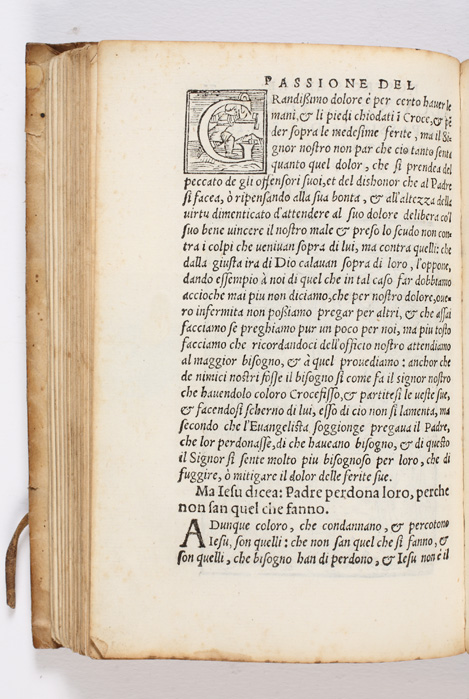 PASSIONE DEL
GRandißimo dolore è per certo hauer le
mani, & li piedi chiodati ĩ Croce, & pē
der sopra le medesime ferite, ma il Si
gnor nostro non par che cio tanto senta
quanto quel dolor, che si prendea del
peccato de gli offensori suoi, et del dishonor che al Padre
si facea, ò ripensando alla sua bonta, & all'altezza della
uirtu dimenticato d'attendere al suo dolore delibera co'l
suo bene uincere il nostro male & preso lo scudo non con
tra i colpi che ueniuan sopra di lui, ma contra quelli: che
dalla giusta ira di Dio calauan sopra di loro, l'oppone,
dando essempio à noi di quel che in tal caso far dobbiamo
accioche mai piu non diciamo, che per nostro dolore, oue-
ro infermita non poßiamo pregar per altri, & che assai
facciamo se preghiamo pur un poco per noi, ma piu tosto
facciamo che ricordandoci dell'officio nostro attendiamo
al maggior bisogno, & à quel prouediamo: anchor che
de nimici nostri fosse il bisogno si come fa il signor nostro
che hauendolo coloro Crocefisso, & partitesi le ueste sue,
& facendosi scherno di lui, esso di cio non si lamenta, ma
secondo che l'Euangelista soggionge pregaua il Padre,
che lor perdonasse, di che haueano bisogno, & di questo
il Signor si sente molto piu bisognoso per loro, che di
fuggire, ò mitigare il dolor delle ferite sue.
Ma Iesu dicea: Padre perdona loro, perche
non san quel che fanno.
ADunque coloro, che condannano, & percotono
Iesu, son quelli: che non san quel che si fanno, &
son quelli, che bisogno han di perdono, & Iesu non è il